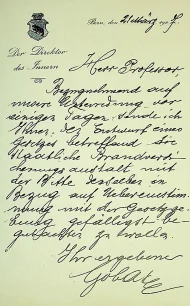 Der Direktor
des Innern
Bern, den 21 März 190
Herr Professor,
Bezugnehmend auf
unsere Unterredung vor
einigen Tagen, sende ich
Ihnen den Entwurf eines
Gesetzes betreffend die
staatliche Brandversi-
cherungsanstalt mit
der Bitte denselben in
Bezug auf Uebereinstim-
mung mit der Gesetzge-
bung gefälligst be-
gutachten zu wollen.
Ihr ergebener
Gobat